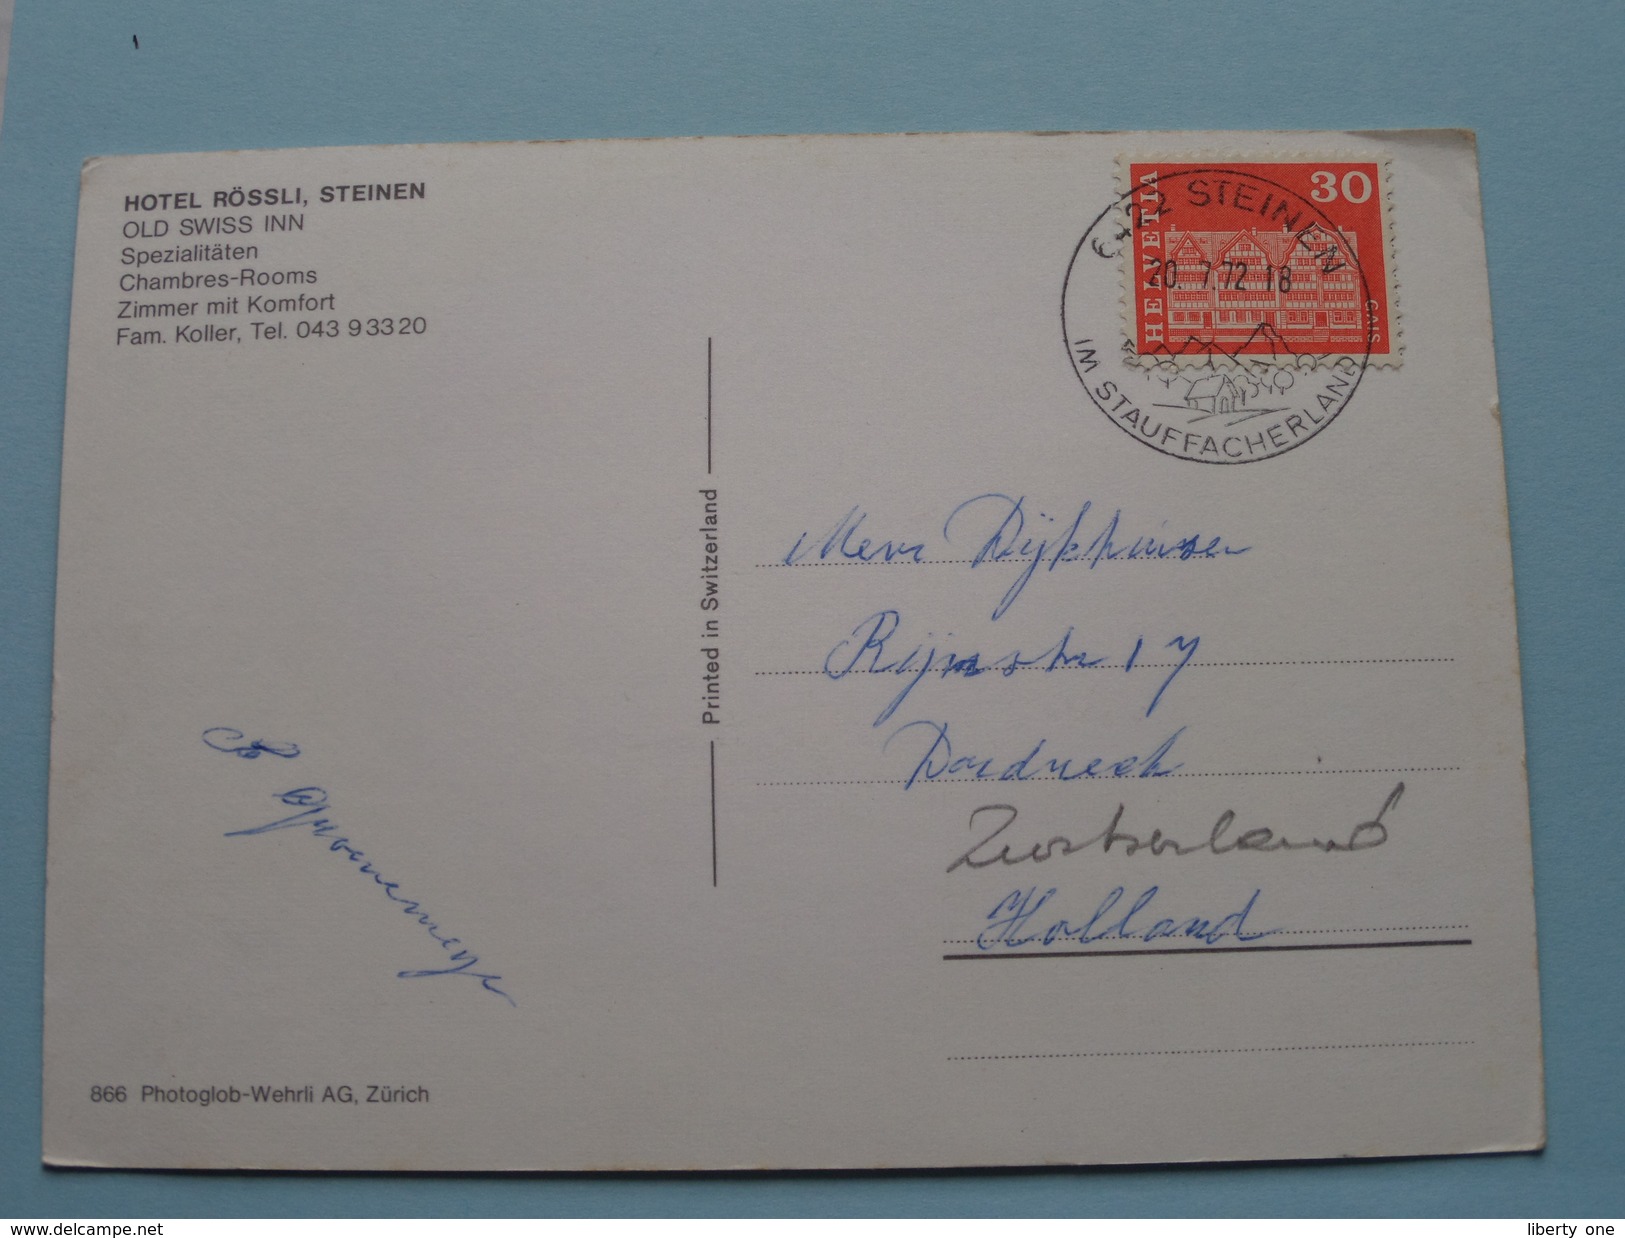 HOTEL RÖSSLI, STEINEN
OLD SWISS INN
Spezialitäten
Chambres-Rooms
Zimmer mit Komfort
Fam. Koller, Tel. 043 9 33 20
HELVETIA
30
GAIS
6422 STEINEN
20. 7.72 18
IM STAUFFACHERLAND
Printed in Switzerland
Mevr Dijkhuizen
Rijnstr 17
Dordrecht
Zwitserland
Holland
866 Photoglob-Wehrli AG, Zürich
www.delcampe.net
liberty one